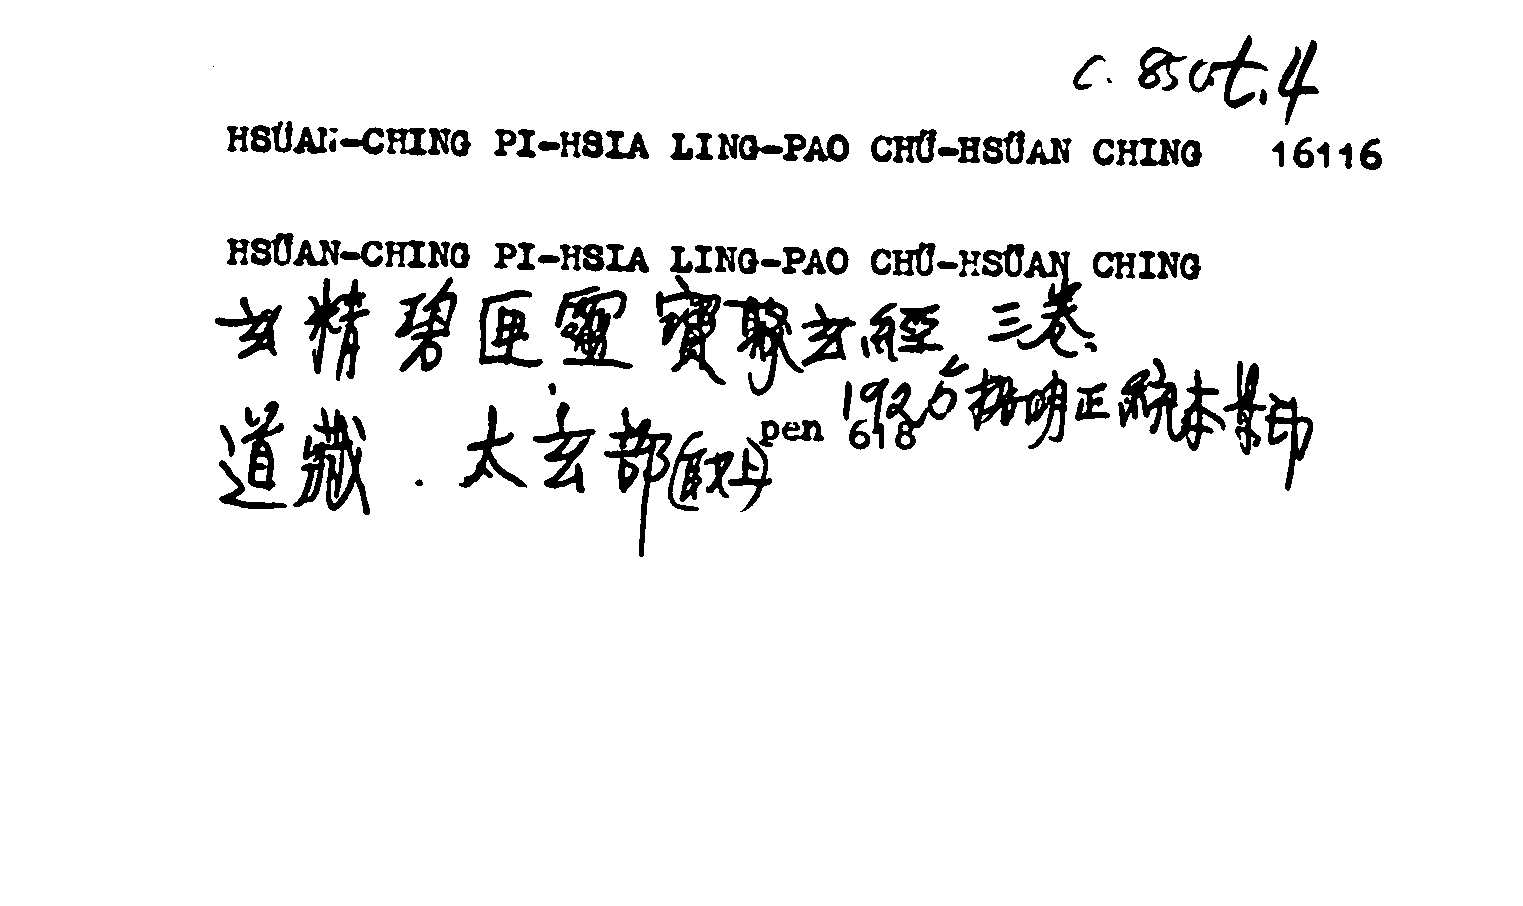 C. 850t.4
HSÜAN-CHING PI-HSIA LING-PAO CHÜ-HSÜAN CHING 16116
HSÜAN-CHING PI-HSIA LING-PAO CHÜ-HSÜAN CHING
玄精碧匣靈寶聚玄經 三卷
192 明正統本景印
道藏.太玄部 pen 618